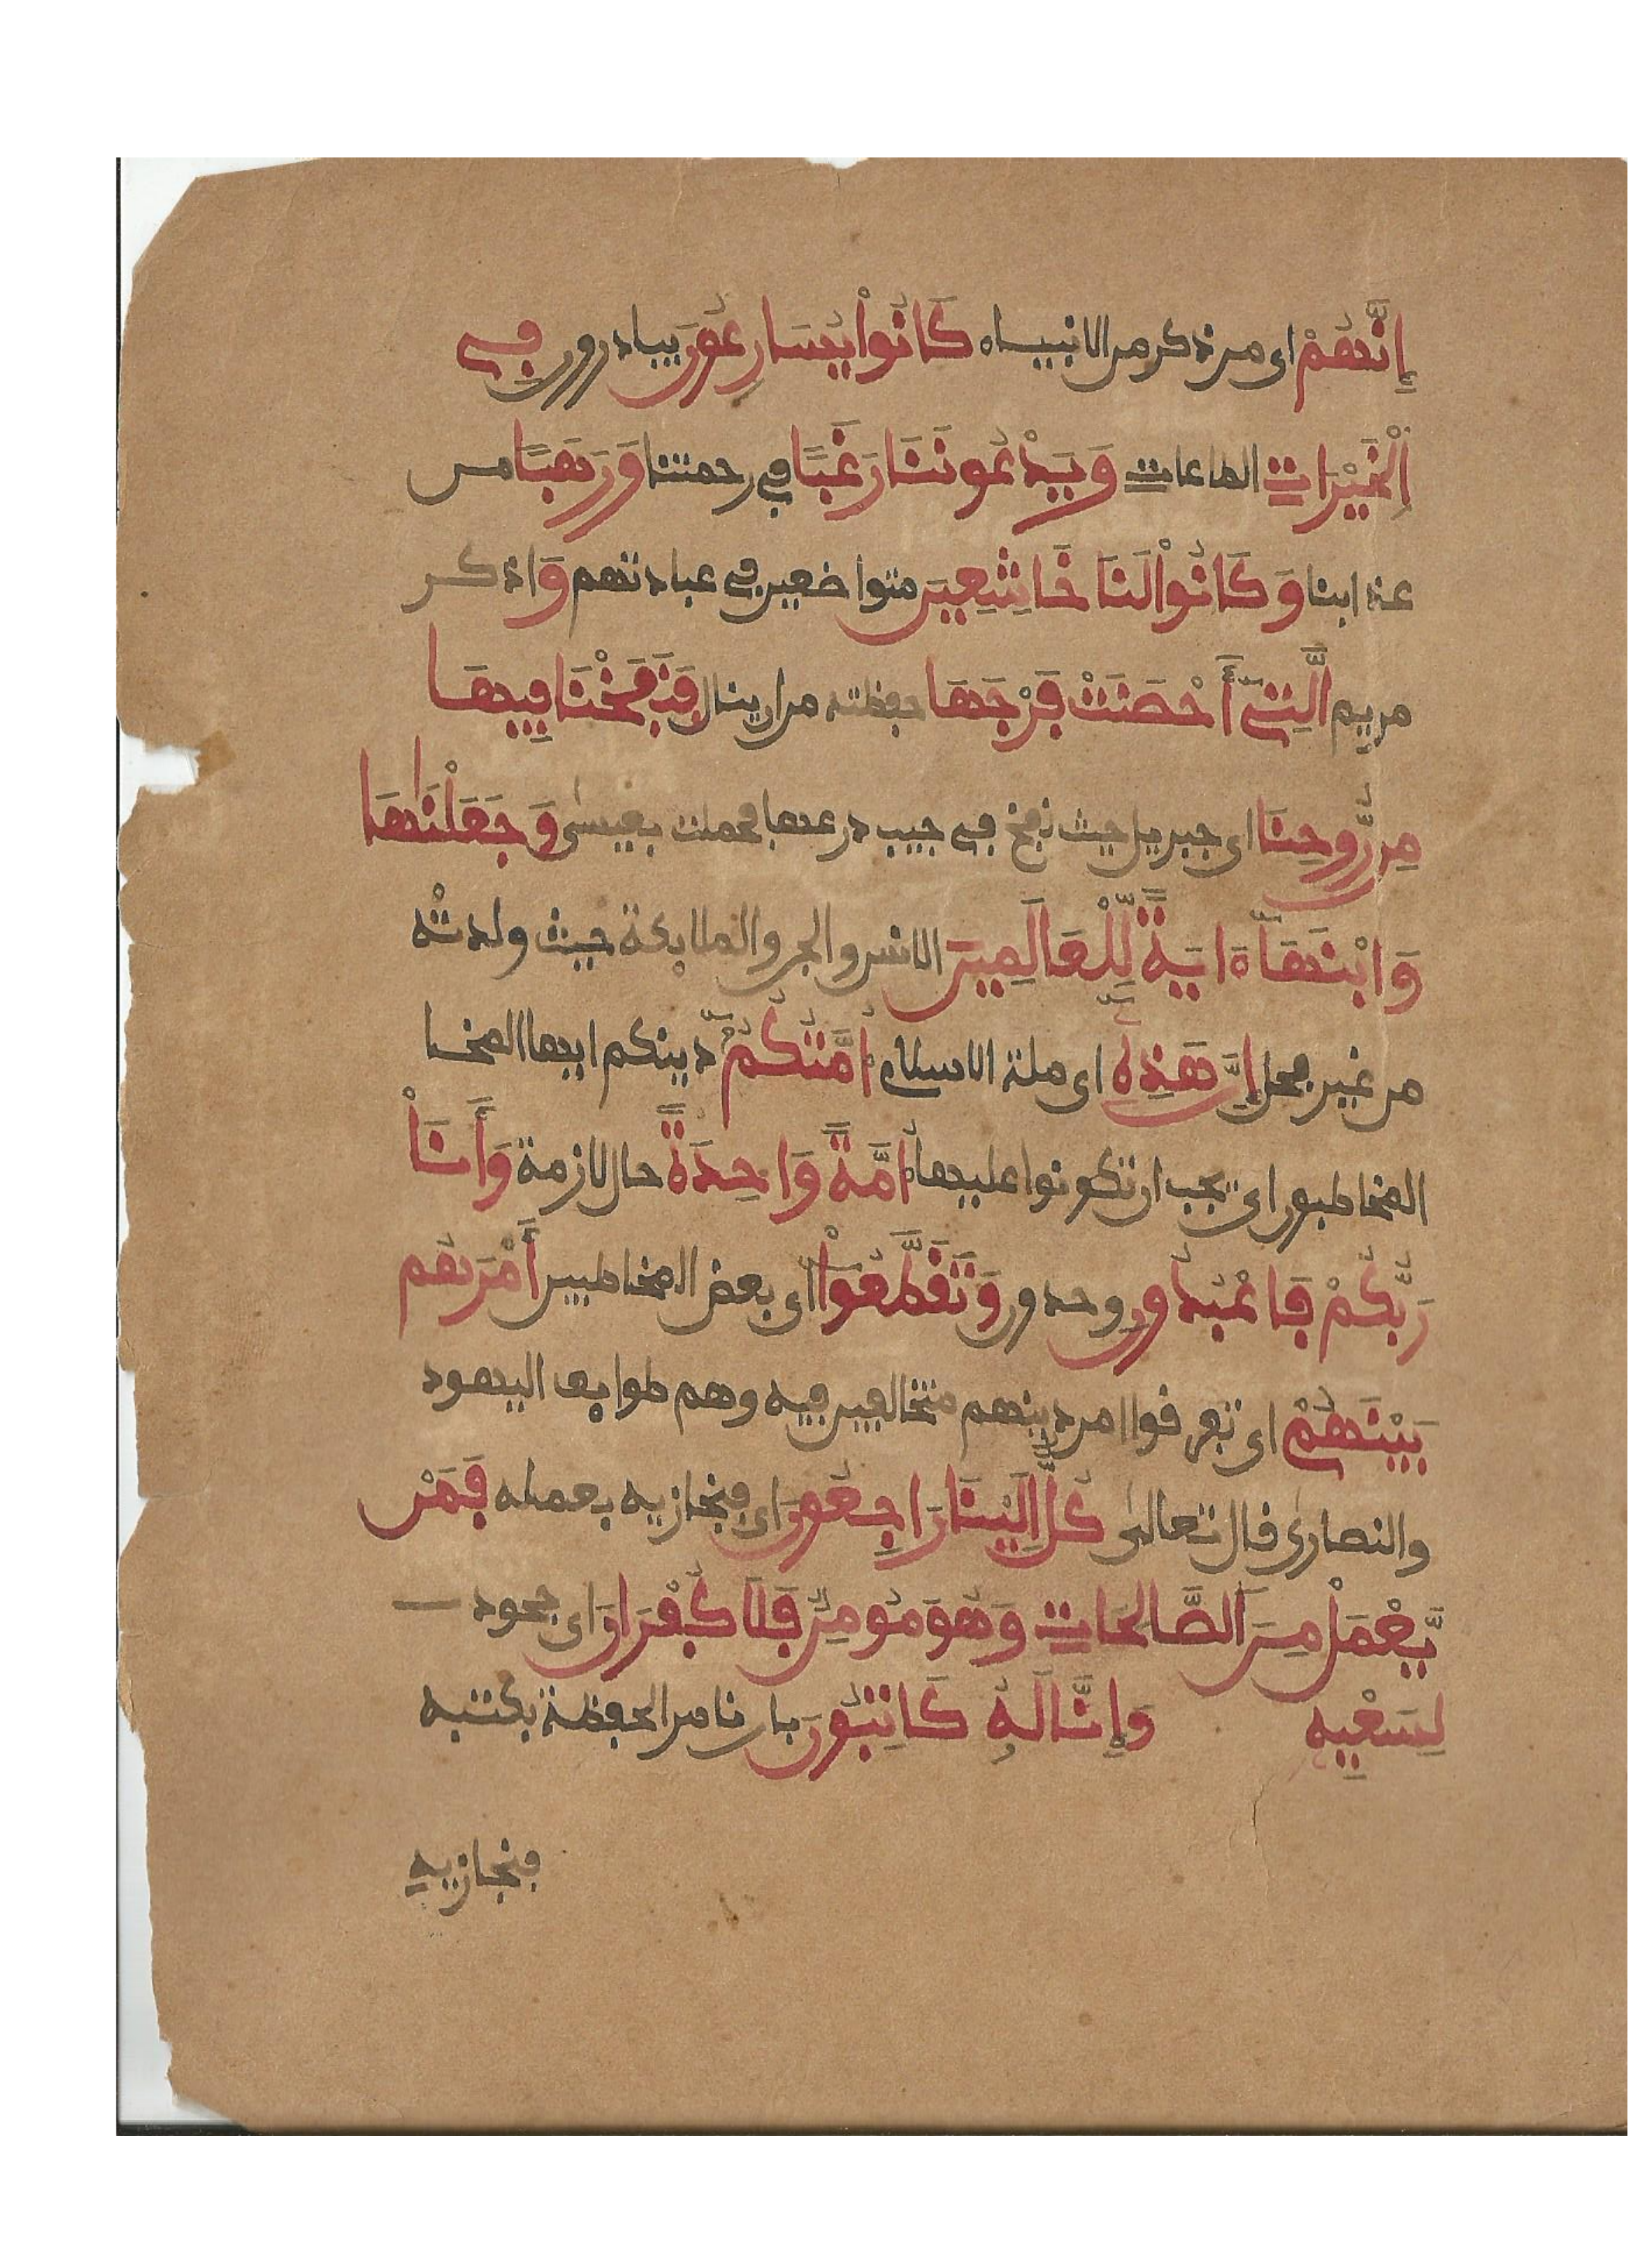 إِنَّهُمْ اى من ذكر من الانبياء كَانُواْ يُسَارِعُونَ يبادرون فِى
اَلْخَيْرَاتِ الطاعات وَيَدْعُونَنَا رَغَبًا فى رحمتنا وَرَهَبًا من
عذابنا وَكَانُواْ لَنَا خَاشِعِينَ متواضعين فى عبادتهم وَاذكر
مريم اَلَّتِىٓ أَحْصَنَتْ فَرْجَهَا حفظته من ان ينال فَنَفَخْنَا فِيهَا
مِن رُّوحِنَا اى جبريل حيث نفخ فى جيب درعها فحملت بعيسى وَجَعَلْنَٰهَا
وَابْنَهَآ ءَايَةً لِّلْعَالَمِينَ الانس والجن والملايكة حيث ولدته
من غير فحل إِنَّ هَذِهِ اى ملة الاسلام أُمَّتُكُمْ دينكم ايها المخا
المخاطبون اى يجب ان تكونوا عليها أُمَّةً وَاحِدَةً حال لازمة وَأَنَاْ
رَبُّكُمْ فَاعْبُدُونِ وحدون وَتَقَطَّعُواْ اى بعض المخاطبين أَمْرَهُم
بَيْنَهُمْ اى تفرقوا امر دينهم متخالفين فيه وهم طوايف اليهود
والنصارى قال تعالى كُلٌّ إِلَيْنَا رَاجِعُونَ اى فنجازيه بعمله فَمَنْ
يَّعْمَلْ مِنَ اَلصَّالِحَاتِ وَهُوَ مُومِنٌ فَلَا كُفْرَانَ اى جحود
لِسَعْيِهِ وَإِنَّا لَهُ كَاتِبُونَ بان نامر الحفظة بكتبه
فنجازيه